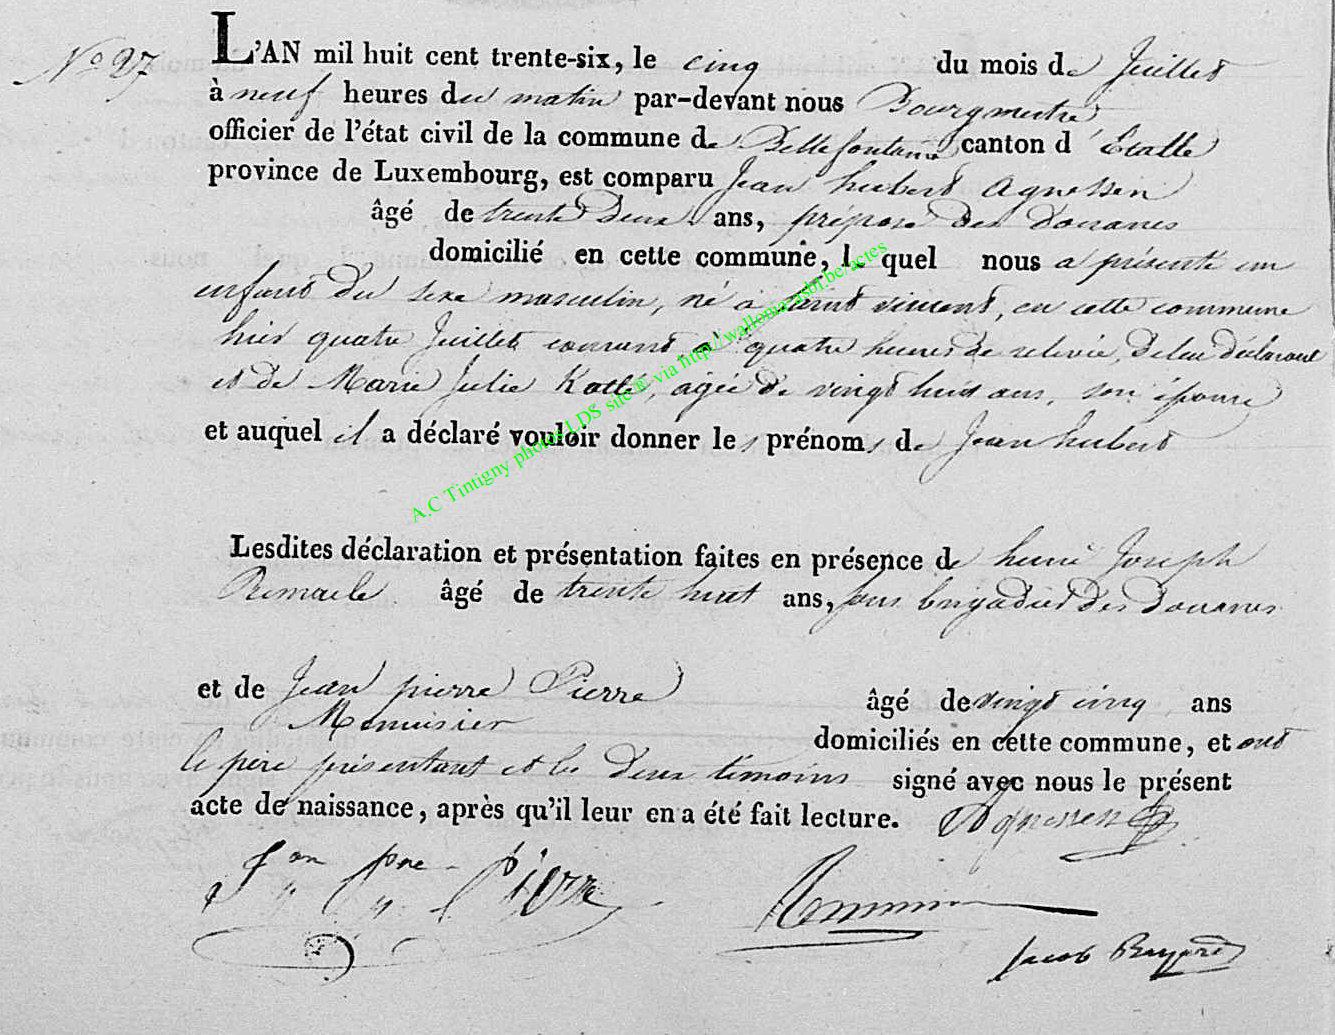 N° 27
L'AN mil huit cent trente-six, le cinq du mois de Juillet
à neuf heures du matin par-devant nous Bourgmestre
officier de l'état civil de la commune de Bellefontaine canton d'Etalle
province de Luxembourg, est comparu Jean hubert Agnessen
âgé de trente deux ans, préposé des Douanes
domicilié en cette commune, le quel nous a présenté un
enfant du sexe masculin, né à Saint vincent, en cette commune
hier quatre Juillet courant, à quatre heures de relevée, de lui déclarant
et de Marie Julie agée de vingt huit ans, son épouse
et auquel il a déclaré vouloir donner les prénoms de Jean hubert
A.C Tintigny photos LDS site © via http://wallonia.asbl.be/actes
Lesdites déclaration et présentation faites en présence de henri Joseph
Remacle âgé de trente huit ans, sous brigadier des Douanes
et de Jean pierre Pierre âgé de vingt cinq ans
Menuisier domiciliés en cette commune, et ont
le pere présentant et les deux témoins signé avec nous le présent
acte de naissance, après qu'il leur en a été fait lecture. Agnessen
Jean pre Pierre
Jacob